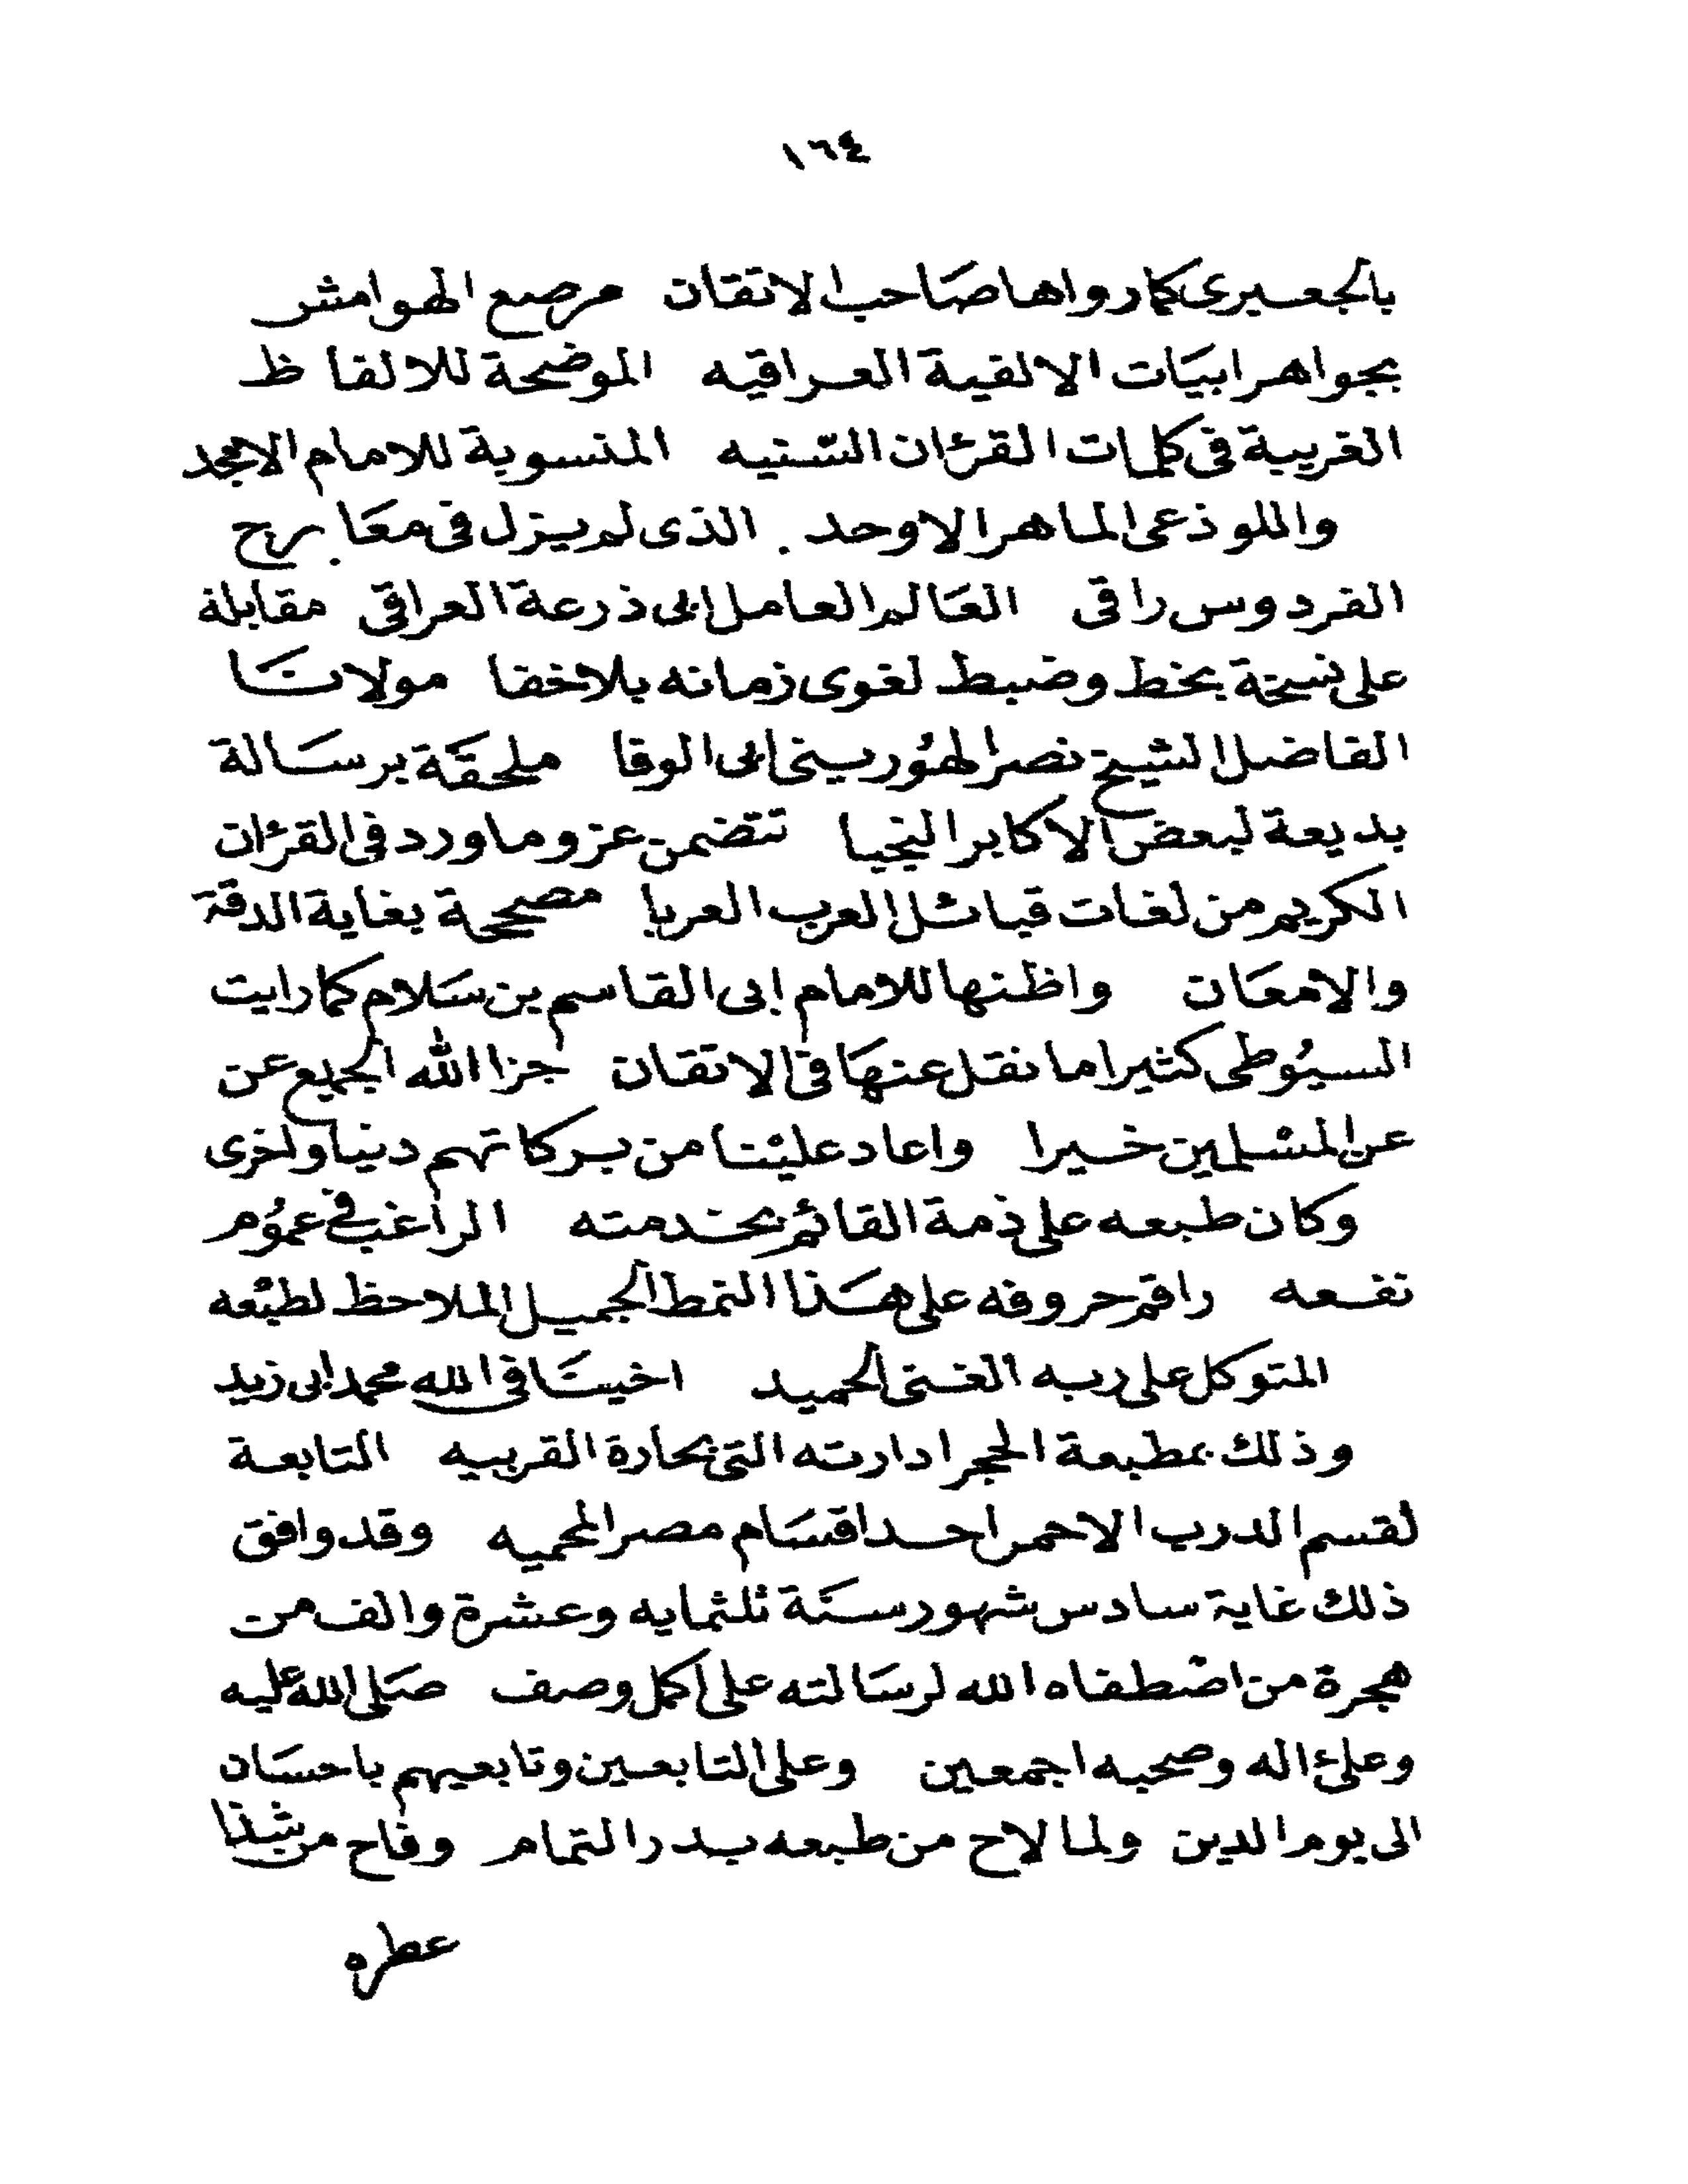 ١٦٤
بالجعبيرى كما رواها صاحب الاتقان مرصع الهوامش
بجواهر ابيات الالفية العراقيه الموضحة للالفاظ
الغريبة فى كلمات القرءان السنيه المنسوبة للامام الامجد
واللوذعى الماهر الاوحد . الذى لم يزل فى معارج
الفردوس راقى العالم العامل ابى ذرعة العراقى مقابلة
على نسخة بخط وضبط لغوى زمانه بلاخفا مولانا
الفاضل الشيخ نصر الهورينى ابى الوفا ملحقة برسالة
بديعة لبعض الاكابر النجبا تتضمن عزو ما ورد فى القرءان
الكريم من لغات قبائل العرب العربا مصححة بغاية الدقة
والامعان واظنها للامام ابى القاسم بن سلام كما رايت
السيوطى كثيرا ما نقل عنها فى الاتقان جزا الله الجميع عن
عن المسلمين خيرا واعاد علينا من بركاتهم دنيا واخرى
وكان طبعه على ذمة القائم بخدمته الراغب فى عموم
نفعه راقم حروفه على هذا النمط الجميل الملاحظ لطبعه
المتوكل على ربه الغنى الحميد اخينا فى الله محمد ابى زيد
وذلك بمطبعة الحجر ادارته التى بحارة القربيه التابعة
لقسم الدرب الاحمر احد اقسام مصر المحميه وقد وافق
ذلك غاية سادس شهور سنة ثلثمايه وعشرة والف من
هجرة من اصطفاه الله لرسالته على اكمل وصف صلى الله عليه
وعلى ءاله وصحبه اجمعين وعلى التابعين وتابعيهم باحسان
الى يوم الدين ولما لاح من طبعه بدر التمام وفاح من شذا
عطره